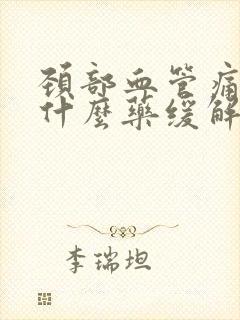 頚部血管痛
什麼藥緩解
李瑞坦